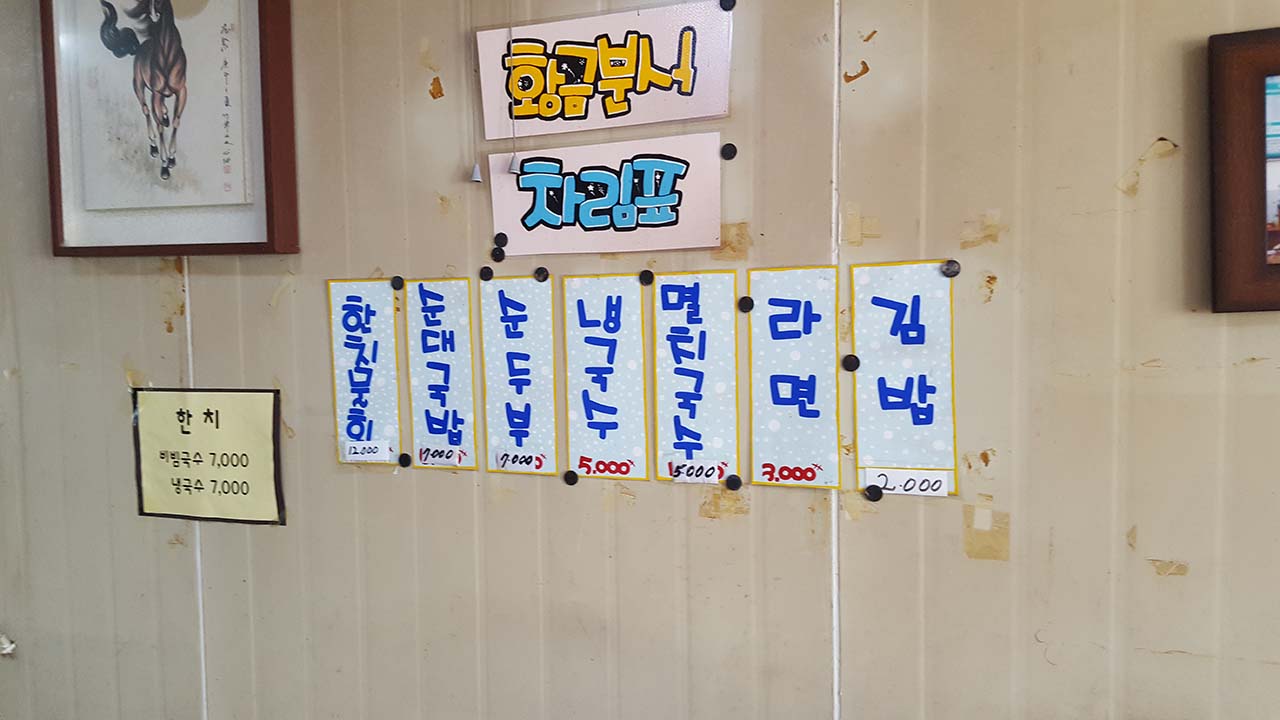 황금분식
차림표
한치
12.000
순대국밥
7.000
순두부
7.000
냉국수
5.000
멸치국수
5.000
라면
3.000
김밥
2.000
한 치
비빔국수 7,000
냉국수 7,000